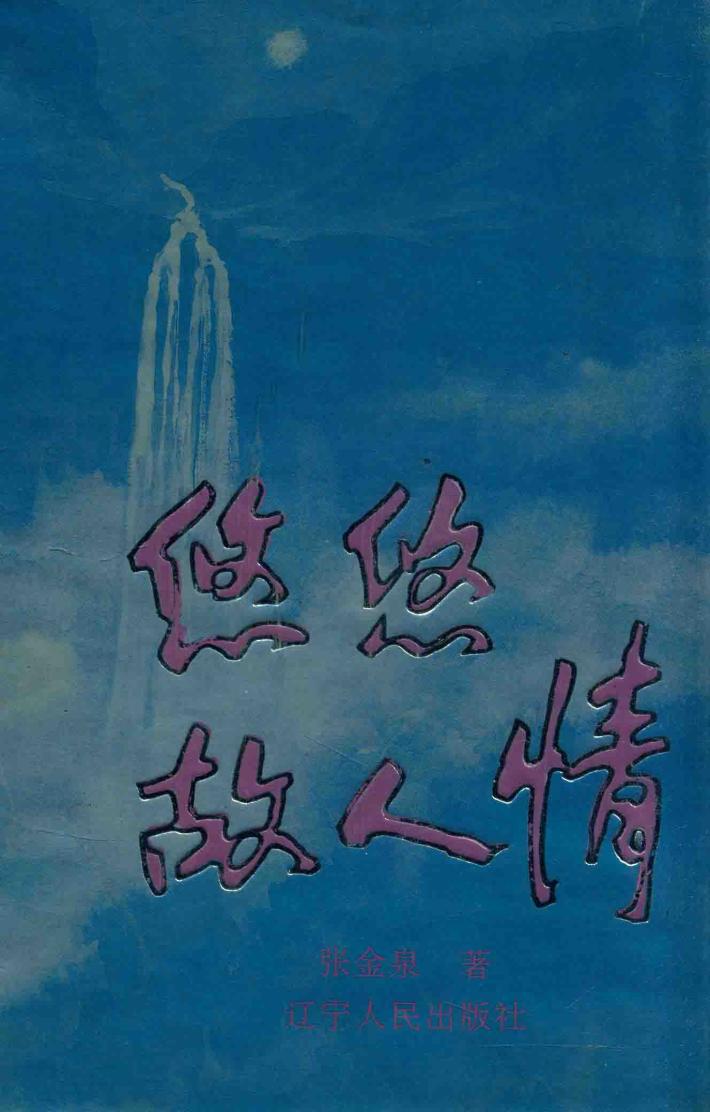 悠悠
故人情
张金泉 著
辽宁人民出版社